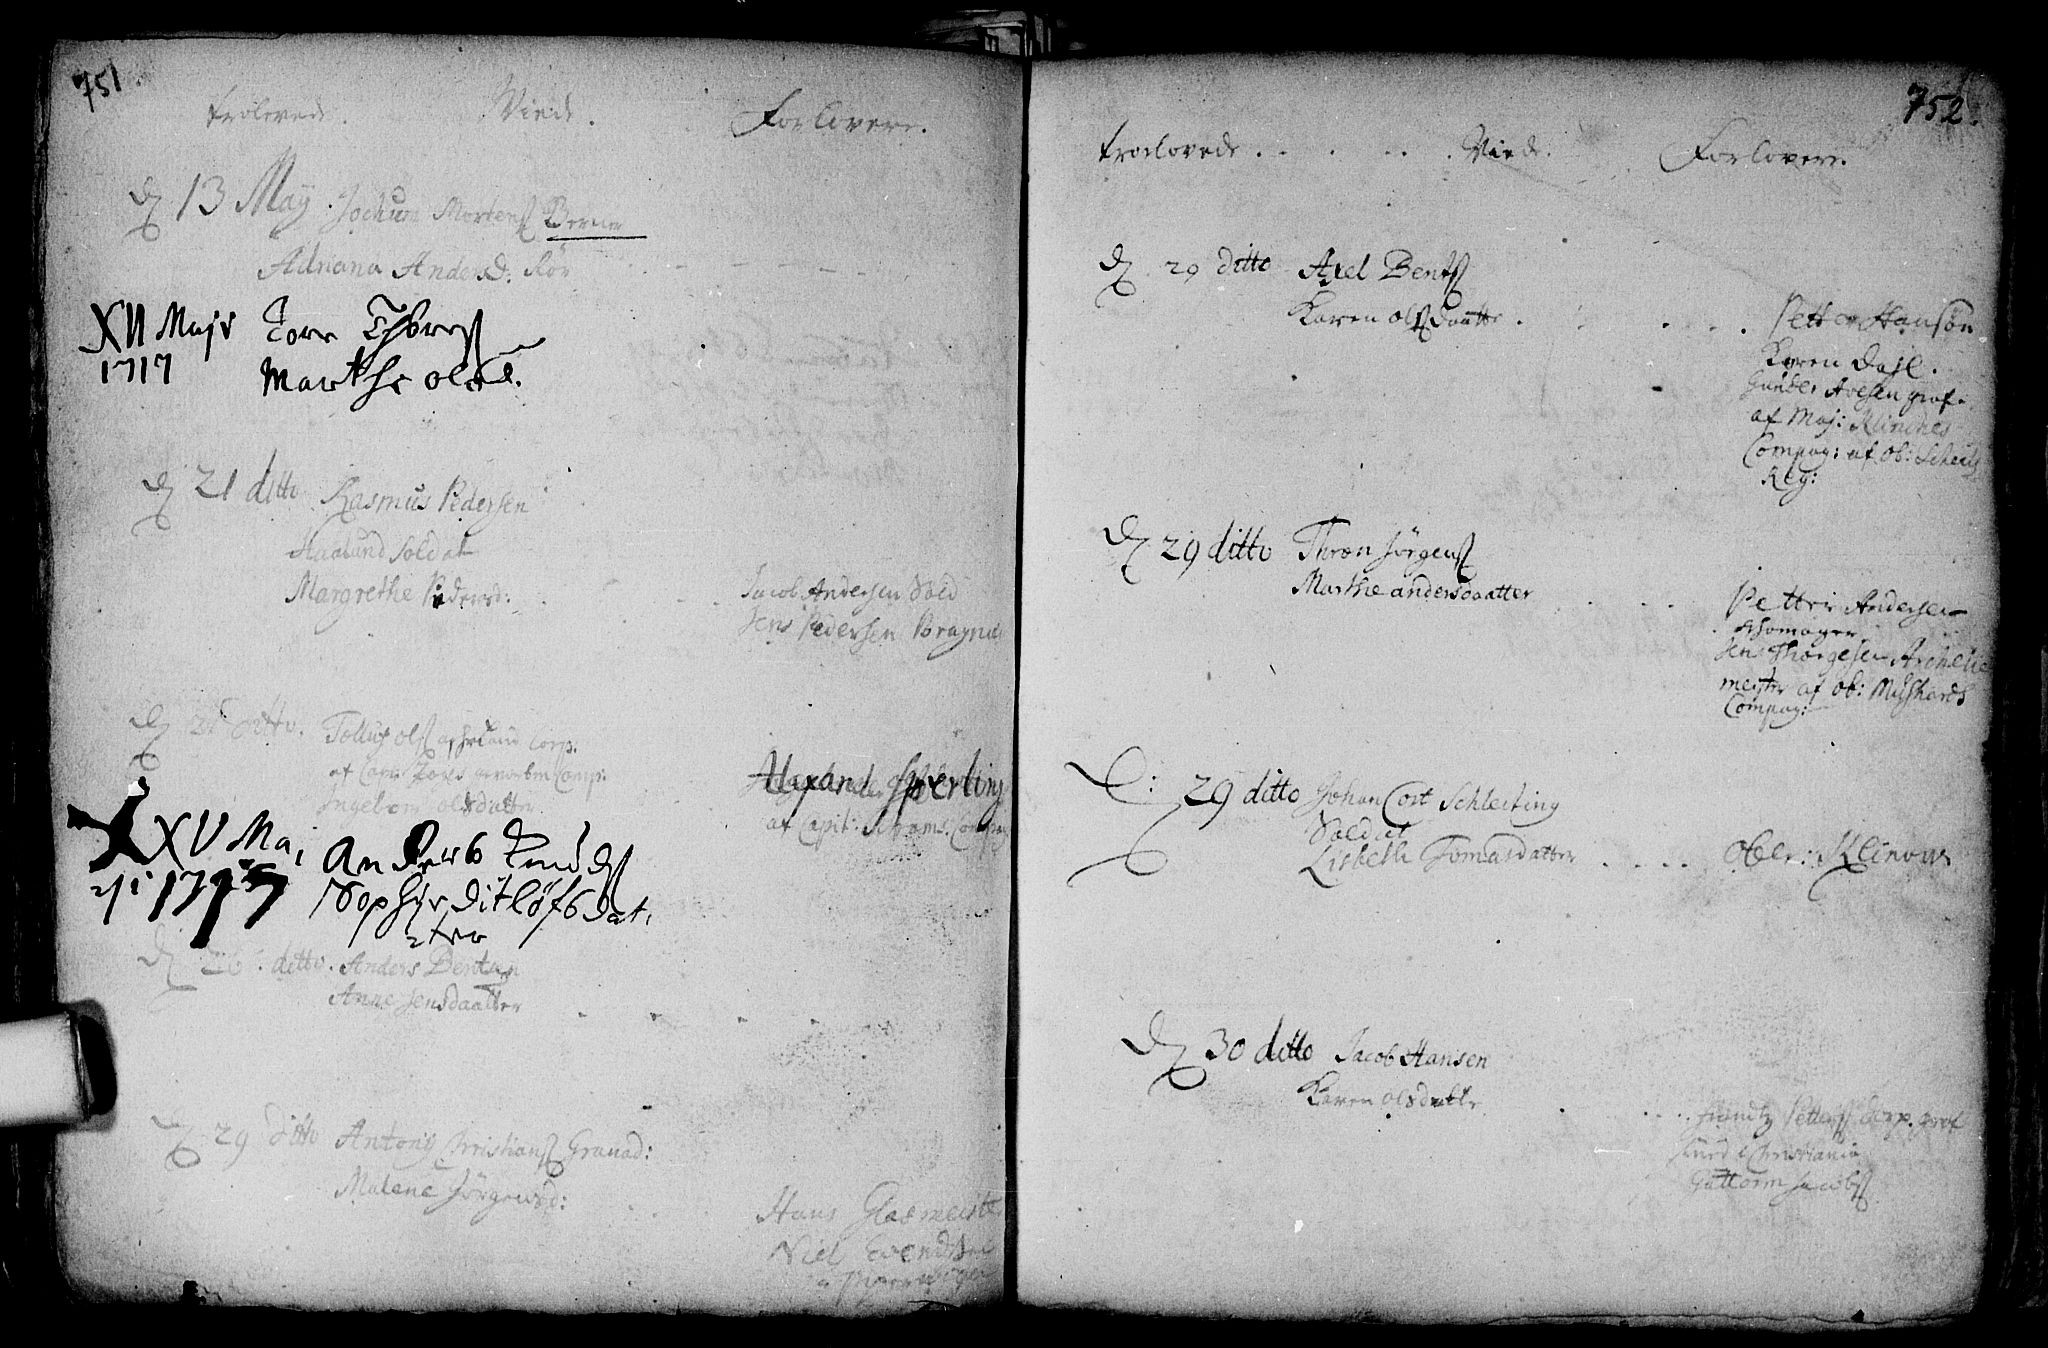 751
trolovede. Viede. Forlovere.
D 13 May. Jochum Mortens Berner
Adriana Andersd. Rør
XII Maji Tore Thores
1717 Marthe olsd.
D 21 ditto Rasmus Pedersen
Haalund Soldat
Margrethe Pedersd:
Jacob Andersen Sold
Jens Pedersen Bragnæs
D 21 ditto. Tollus ols Corp:
af Comp:
Ingebor olsdatter
Alexand Sperling
af Capit: Schrams Compag
XXV Mai Anders Knuds
1717 Sophie ditløfs dat,
ter
D 26. ditto. Anders Bentsen
Anne Jensdaatter
D 29 ditto Antony Christians Granad:
Malene Jørgensd:
Hans Glasmeister
Niel Svendsen
752.
trolovede. Viede. Forlovere.
D 29 ditto Axel Bents
Karen olsdaatter
Petter Hansøn
Karen Dahl.
Gunder
af Maj: Klinches
Compag: af Ob:
Reg:
D 29 ditto Thron Jørgens
Marthe andersdaatter
Petter Andersen
Skomager
Jens Thorgesen
mester af Ob: Mushards
Compag:
D: 29 ditto Johan Cort Schlesting
Soldat
Lisbeth Tomasdatter
Ober: Klinow
D 30 ditto Jacob Hansen
Karen olsdatter
Petters Corp.
i Christiania
Guttorm Jacobs